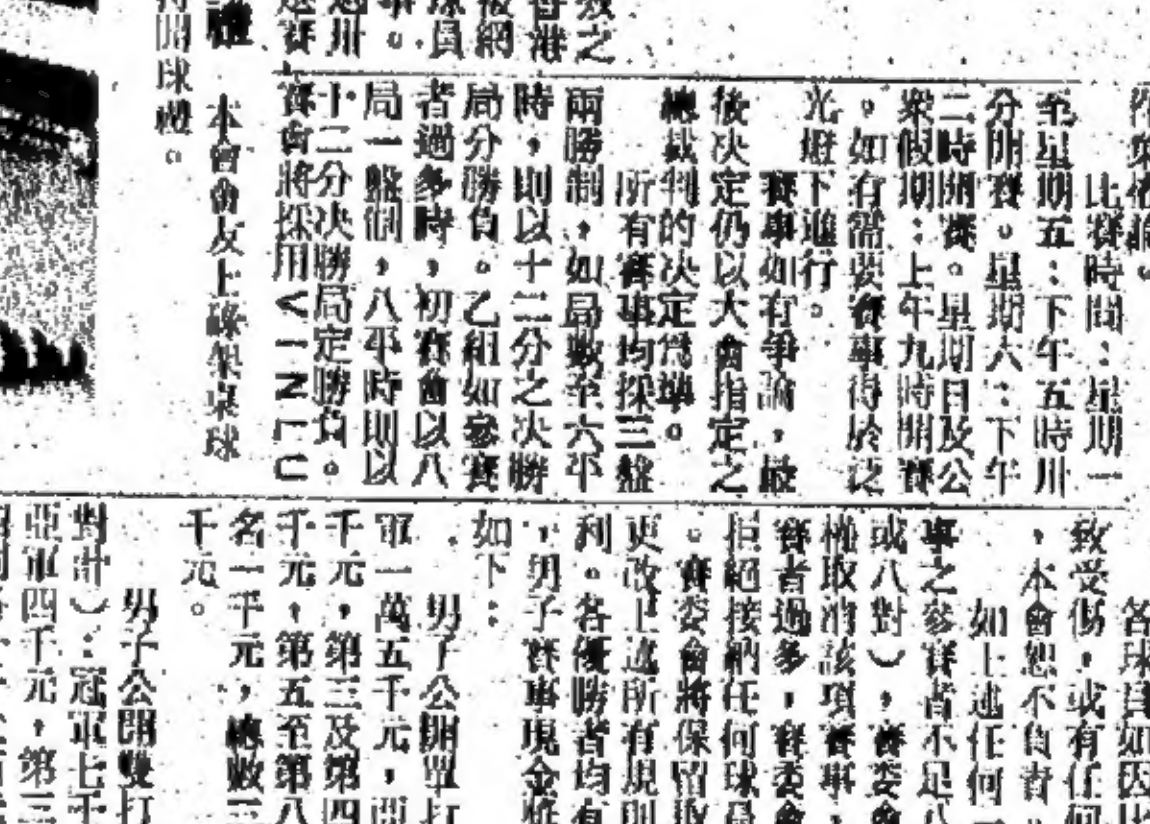 比賽時間：星期一
至星期五：下午五時卅
分開賽。星期六：下午
二時開賽。星期日及公
衆假期：上午九時開賽
。如有需要賽事得於泛
光燈下進行。
賽事如有爭論，最
後决定仍以大會指定之
總裁判的决定爲準。
所有賽事均採三盤
兩勝制，如局數至六平
時，則以十二分之决勝
局分勝負。乙組如參賽
者過多時，初賽會以八
局一盤制，八平時則以
十二分决勝局定勝負。
賽會將採用
本會會友上
開球禮。
各球員如因比
致受傷，或有任何
，本會恕不負責
如上述任何
事之參賽者不足八
或八對），賽委會
權取消該項賽事，
賽者過多，賽委會
拒絕接納任何球員
。賽委會將保留取
更改上述所有規則
利。各優勝者均有
，男子賽事現金獎
如下：
男子公開單打
軍一萬五千元，亞
千元，第三及第四
千元，第五至第八
名一千元，總數三
千元。
男子公開雙打
對計）：冠軍七千
亞軍四千元，第三